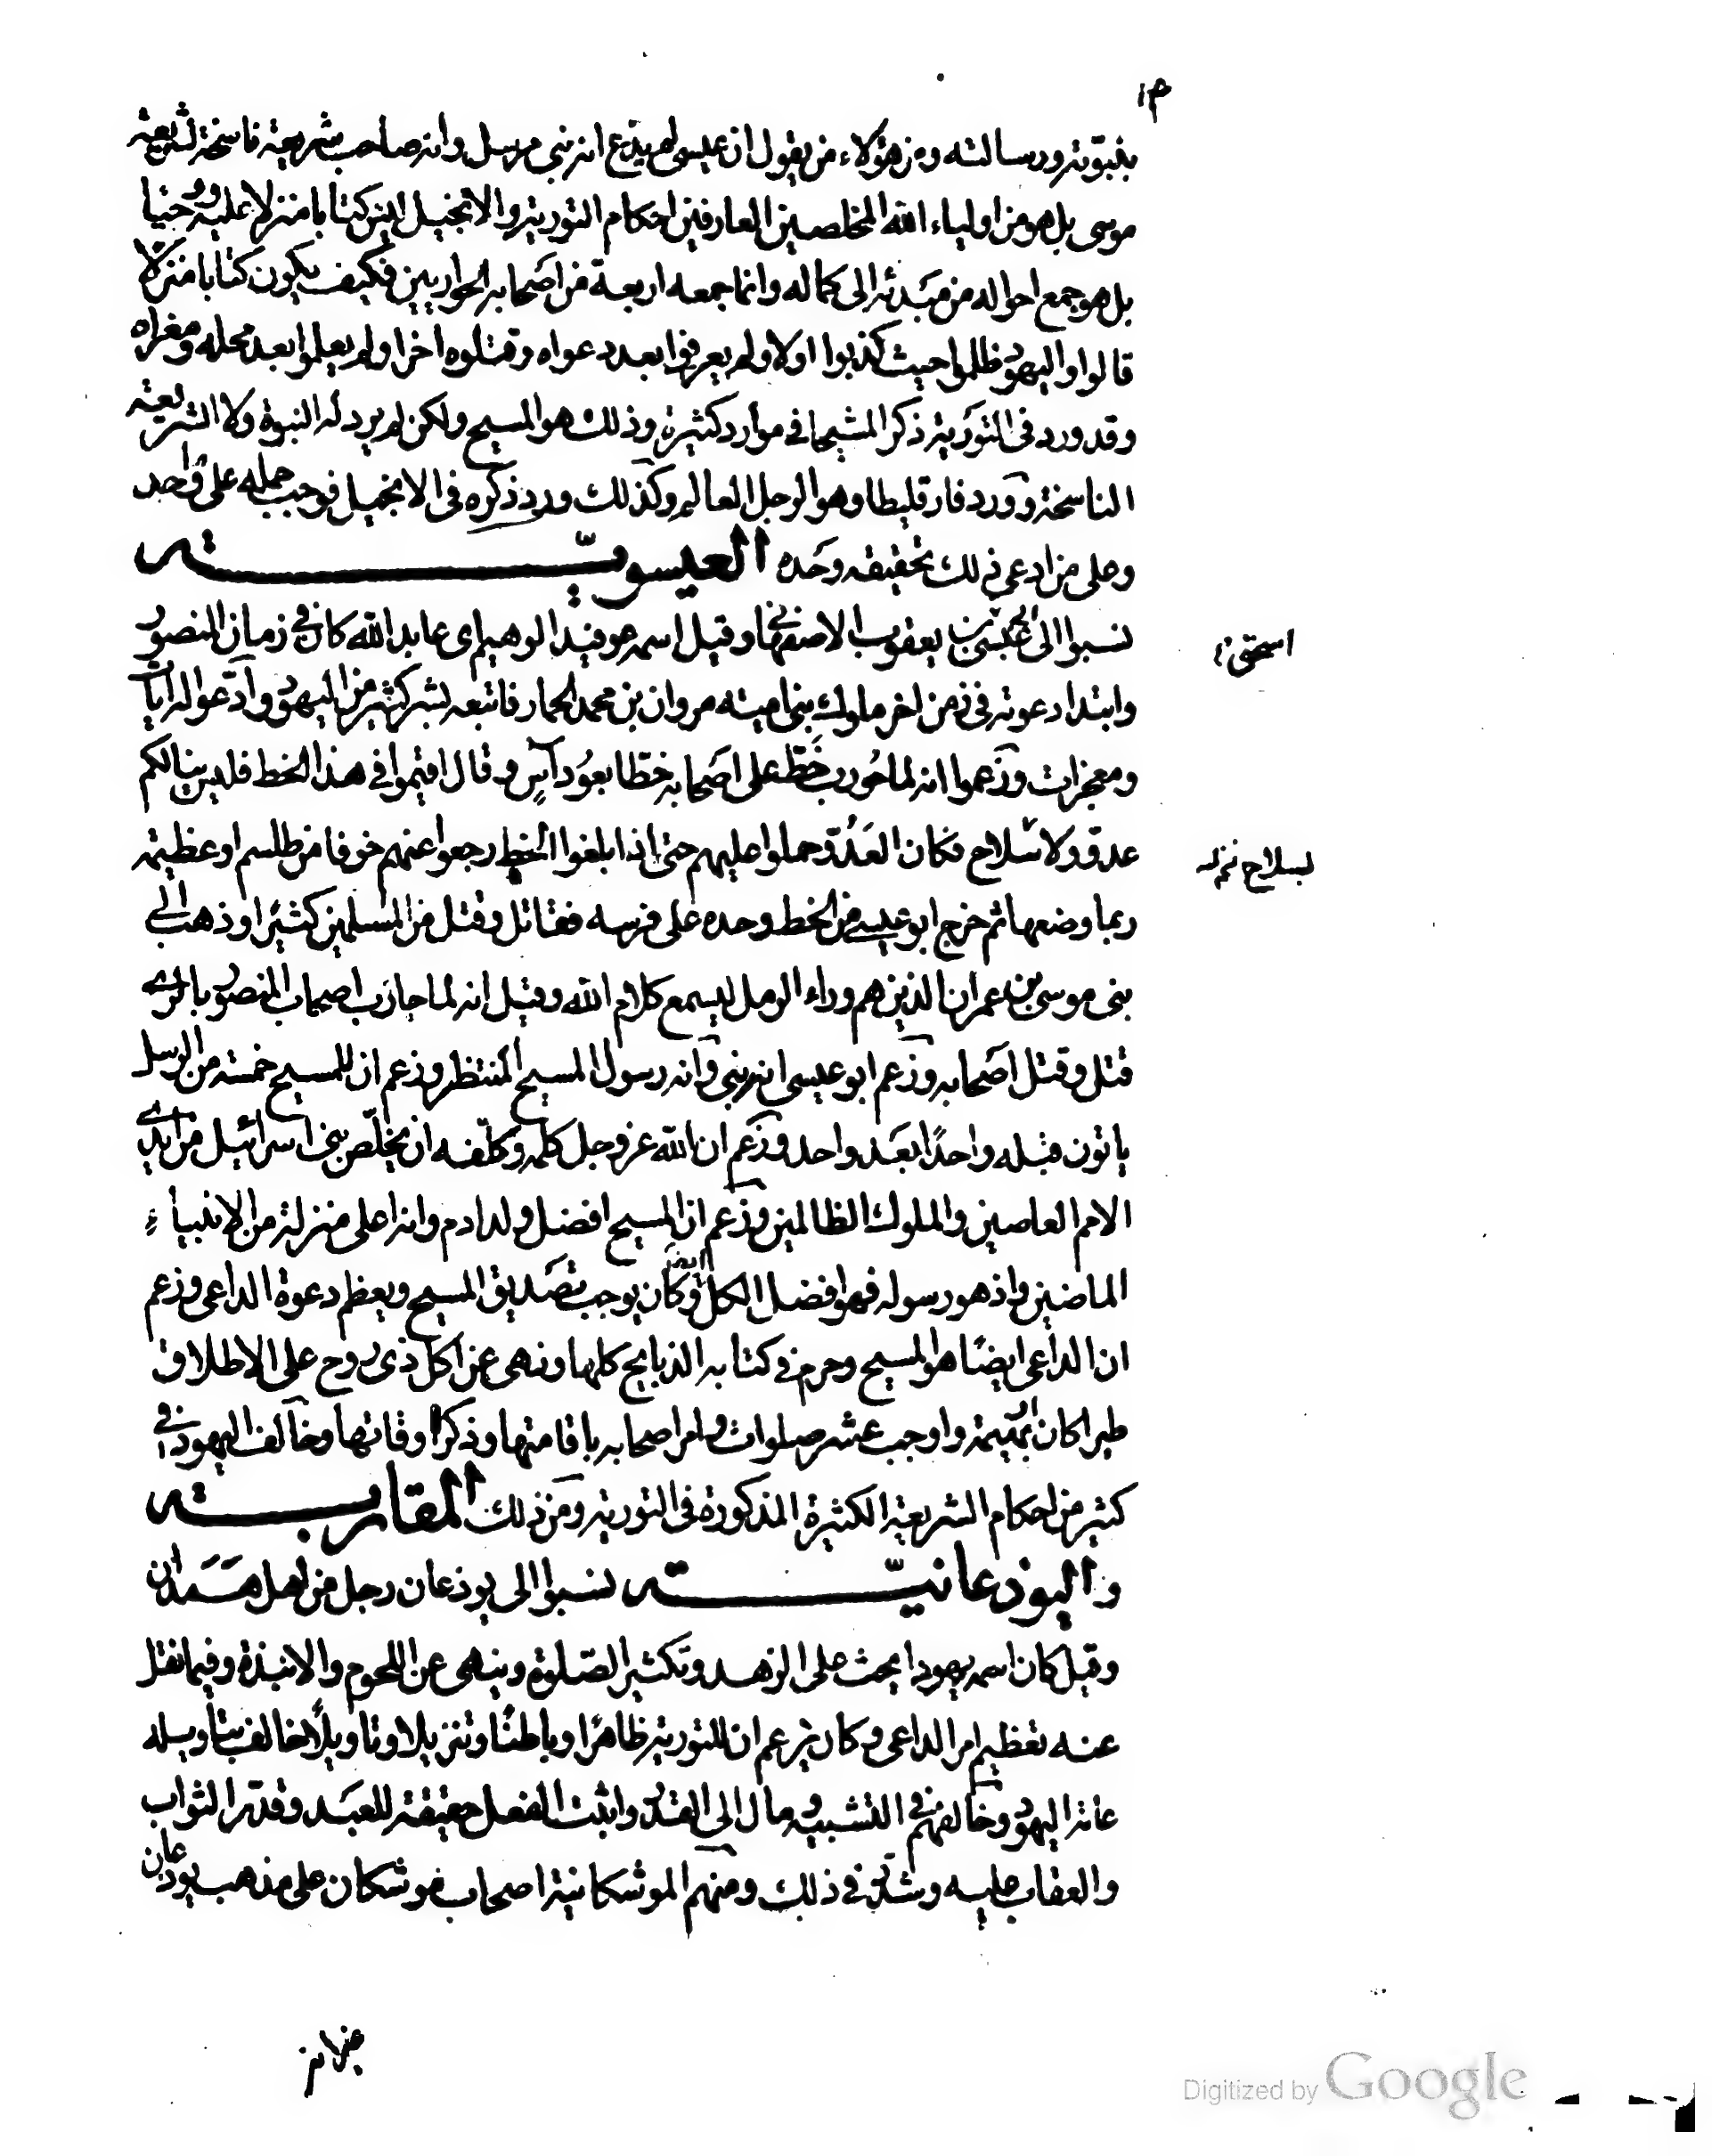 بنبوته ورسالته ومن هؤلاء من يقول ان عيسى لم يدع انه نبى مرسل وانه صاحب شريعة ناسخة لشريعة
موسى بل هو من اولياء الله المخلصين العارفين احكام التورية والانجيل ليس كتابا منزلا عليه ووحيا
بل هو جمع احواله من مبدئه الى كماله وانما جمعه اربعة من اصحابه الحواريين فكيف يكون كتابا منزلا
قالوا واليهود ظلموا حيث كذبوا اولا ولم يعرفوا بعد دعواه وقتلوه اخرا ولم يعلموا بعد محله ومغزاه
وقد ورد فى التورية ذكر المشيحا فى موارد كثيرة وذلك هو المسيح ولكن لم يرد له النبوة ولا الشريعة
الناسخة وورد فارقليطا وهو الرجل العالم وكذلك ورد ذكره فى الانجيل فوجب حمله على ما وجد
وعلى من ادعى ذلك تحقيقه وحده العيسويّة
نسبوا الى ابى عيسى بن يعقوب الاصفهانى وقيل اسمه عوفيد الوهيم اى عابد الله كان فى زمان المنصور
اسحق
وابتدا دعوته فى زمن اخر ملوك بنى امية مروان بن محمد الحمار فاتبعه بشر كثير من اليهود وادّعوا له ايات
ومعجزات وزعموا انه لما حُورب خطّ على اصحابه خطّا بعُود آسٍ وقال اقيموا فى هذا الخط فليس ينالكم
عدوّ ولا سلاح فكان العَدُوّ حملوا عليهم حتى اذا بلغوا الخط رجعوا عنهم خوفا من طلسم او عظيمة
بسلاح نخـه
ربما وضعها ثم خرج ابو عيسى من الخط وحده على فرسه فقاتل وقتل من المسلمين كثيرا وذهب الى
بنى موسى بن عمران الذين هم وراء الرمل ليسمع كلام الله وقيل انه لما حارب اصحاب المنصور بالرى
قتل وقتل اصحابه وزعم ابو عيسى انه نبى وانه رسول المسيح المنتظر وزعم ان للمسيح خمسة من الرسل
ياتون قبله واحدًا بعد واحد وزعم ان الله عز وجل كلمه وكلّفه ان يخلّص بنى اسرائيل من ايدى
الامم العاصين والملوك الظالمين وزعم ان المسيح افضل ولد ادم وانه اعلى منزلة من الانبياء
الماضين واذ هو رسوله فهو افضل الكل ايضا وكان يوجب تصديق المسيح ويعظم دعوة الداعى وزعم
ان الداعى ايضًا هو المسيح وحرم فى كتابه الذبايح كلها ونهى عن اكل ذى روح على الاطلاق
طيرا كان او بهيمة واوجب عشر صلوات وامر اصحابه باقامتها وذكر اوقاتها وخالف اليهود فى
كثير من احكام الشريعة الكثيرة المذكورة فى التورية ومن ذلك المقاربة
واليوذعانيّة نسبوا الى يوذعان رجل من اهل همدان
وقيل كان اسمه يهودا يحث على الزهد وتكثير الصلوة وينهى عن اللحوم والانبذة وفيما نقل
عنه تعظيم امر الداعى وكان يزعم ان للتورية ظاهرًا وباطنًا وتنزيلا وتاويلًا خالف بتاويله
عامة اليهود وخالفهم فى التشبيه ومال الى القدر واثبت الفعل حقيقة للعبد وقدّر الثواب
والعقاب عليه وشدّد فى ذلك ومنهم الموشكانية اصحاب موشكان على مذهب يوذعان
غير انه
Digitized by Google